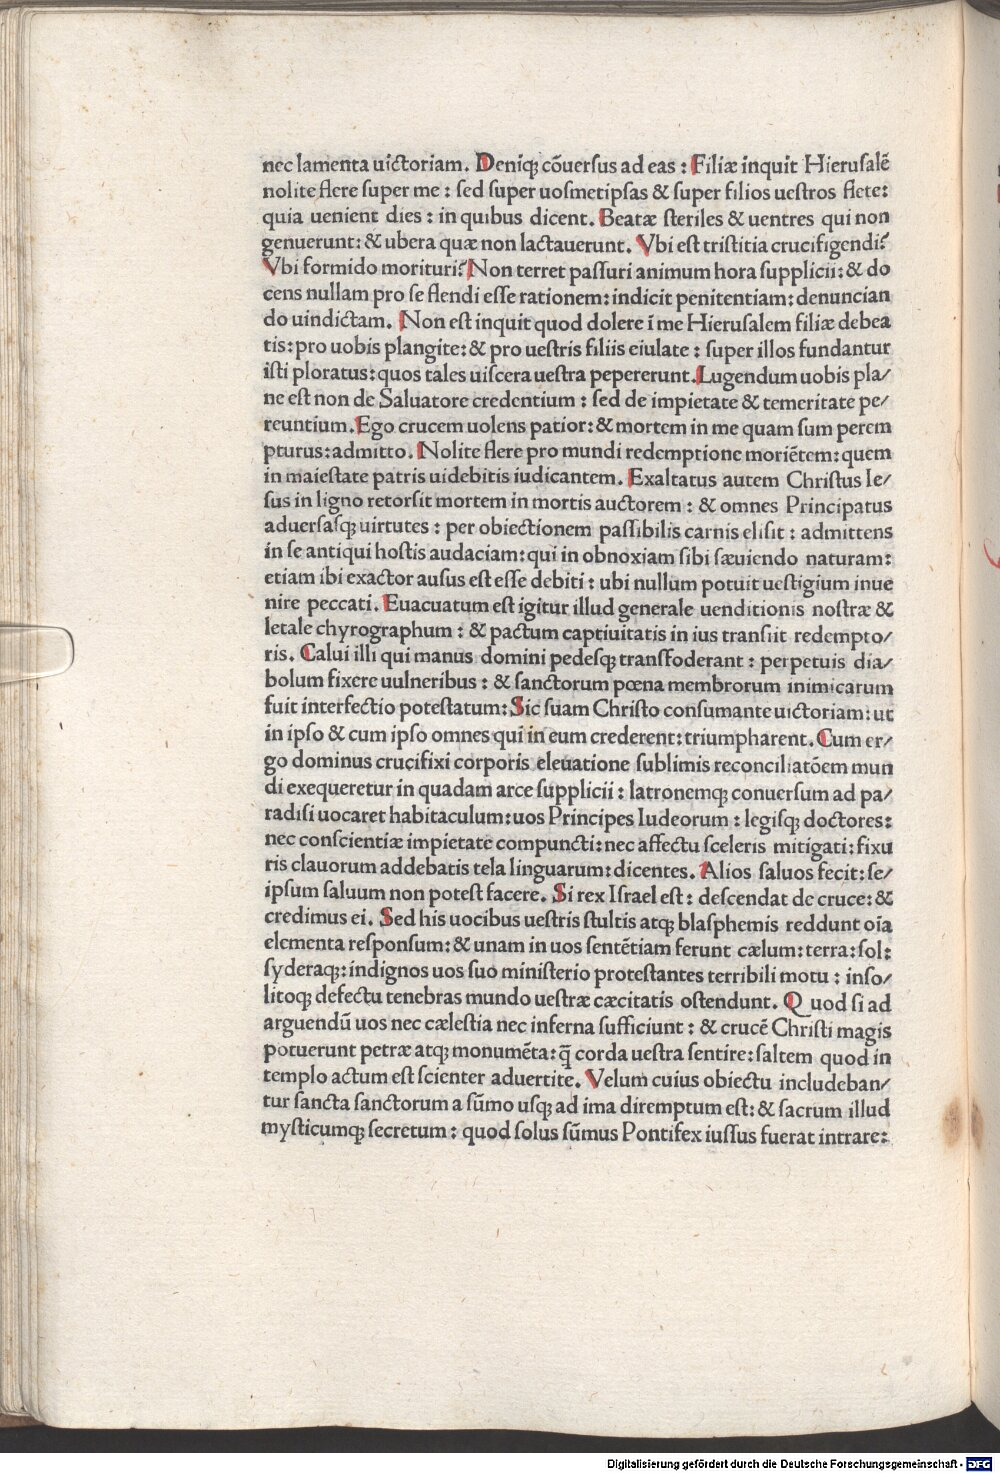 nec lamenta uictoriam. Deniqꝫ cõuersus ad eas : Filiæ inquit Hierusalẽ
nolite flere super me : sed super uosmetipsas & super filios uestros flete:
quia uenient dies : in quibus dicent. Beatæ steriles & uentres qui non
genuerunt: & ubera quæ non lactauerunt. Vbi est tristitia crucifigendi?
Vbi formido morituri? Non terret passuri animum hora supplicii: & do
cens nullam pro se flendi esse rationem: indicit penitentiam: denuncian
do uindictam. Non est inquit quod dolere ĩ me Hierusalem filiæ debea
tis: pro uobis plangite: & pro uestris filiis eiulate : super illos fundantur
isti ploratus: quos tales uiscera uestra pepererunt. Lugendum uobis pla/
ne est non de Saluatore credentium : sed de impietate & temeritate pe/
reuntium. Ego crucem uolens patior: & mortem in me quam sum perem
pturus: admitto. Nolite flere pro mundi redemptione moriẽtem: quem
in maiestate patris uidebitis iudicantem. Exaltatus autem Christus Ie/
sus in ligno retorsit mortem in mortis auctorem : & omnes Principatus
aduersasqꝫ uirtutes : per obiectionem passibilis carnis elisit : admittens
in se antiqui hostis audaciam: qui in obnoxiam sibi sæuiendo naturam:
etiam ibi exactor ausus est esse debiti : ubi nullum potuit uestigium inue
nire peccati. Euacuatum est igitur illud generale uenditionis nostræ &
letale chyrographum : & pactum captiuitatis in ius transiit redempto/
ris. Calui illi qui manus domini pedesqꝫ transfoderant : perpetuis dia/
bolum fixere uulneribus : & sanctorum pœna membrorum inimicarum
fuit interfectio potestatum: Sic suam Christo consumante uictoriam: ut
in ipso & cum ipso omnes qui in eum crederent: triumpharent. Cum er/
go dominus crucifixi corporis eleuatione sublimis reconciliatõem mun
di exequeretur in quadam arce supplicii : latronemqꝫ conuersum ad pa/
radisi uocaret habitaculum: uos Principes Iudeorum : legisqꝫ doctores:
nec conscientiæ impietate compuncti: nec affectu sceleris mitigati: fixu
ris clauorum addebatis tela linguarum: dicentes. Alios saluos fecit: se/
ipsum saluum non potest facere. Si rex Israel est : descendat de cruce: &
credimus ei. Sed his uocibus uestris stultis atqꝫ blasphemis reddunt oĩa
elementa responsum: & unam in uos sentẽtiam ferunt cælum: terra: sol:
syderaqꝫ: indignos uos suo ministerio protestantes terribili motu : inso/
litoqꝫ defectu tenebras mundo uestræ cæcitatis ostendunt. Quod si ad
arguendũ uos nec cælestia nec inferna sufficiunt : & crucẽ Christi magis
potuerunt petræ atqꝫ monumẽta: q̃ corda uestra sentire: saltem quod in
templo actum est scienter aduertite. Velum cuius obiectu includeban/
tur sancta sanctorum a sũmo usqꝫ ad ima diremptum est: & sacrum illud
mysticumqꝫ secretum : quod solus sũmus Pontifex iussus fuerat intrare:
Digitalisierung gefördert durch die Deutsche Forschungsgemeinschaft - DFG